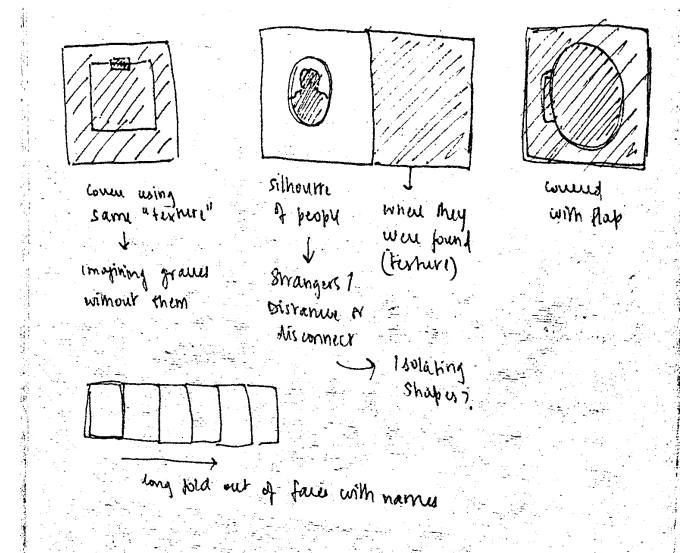 cover using
same "texture"
imagining graves
without them
silhouette
of people
strangers?
Distance or
disconnect
Isolating
shapes?
where they
were found
(texture)
covered
with flap
long fold out of faces with names